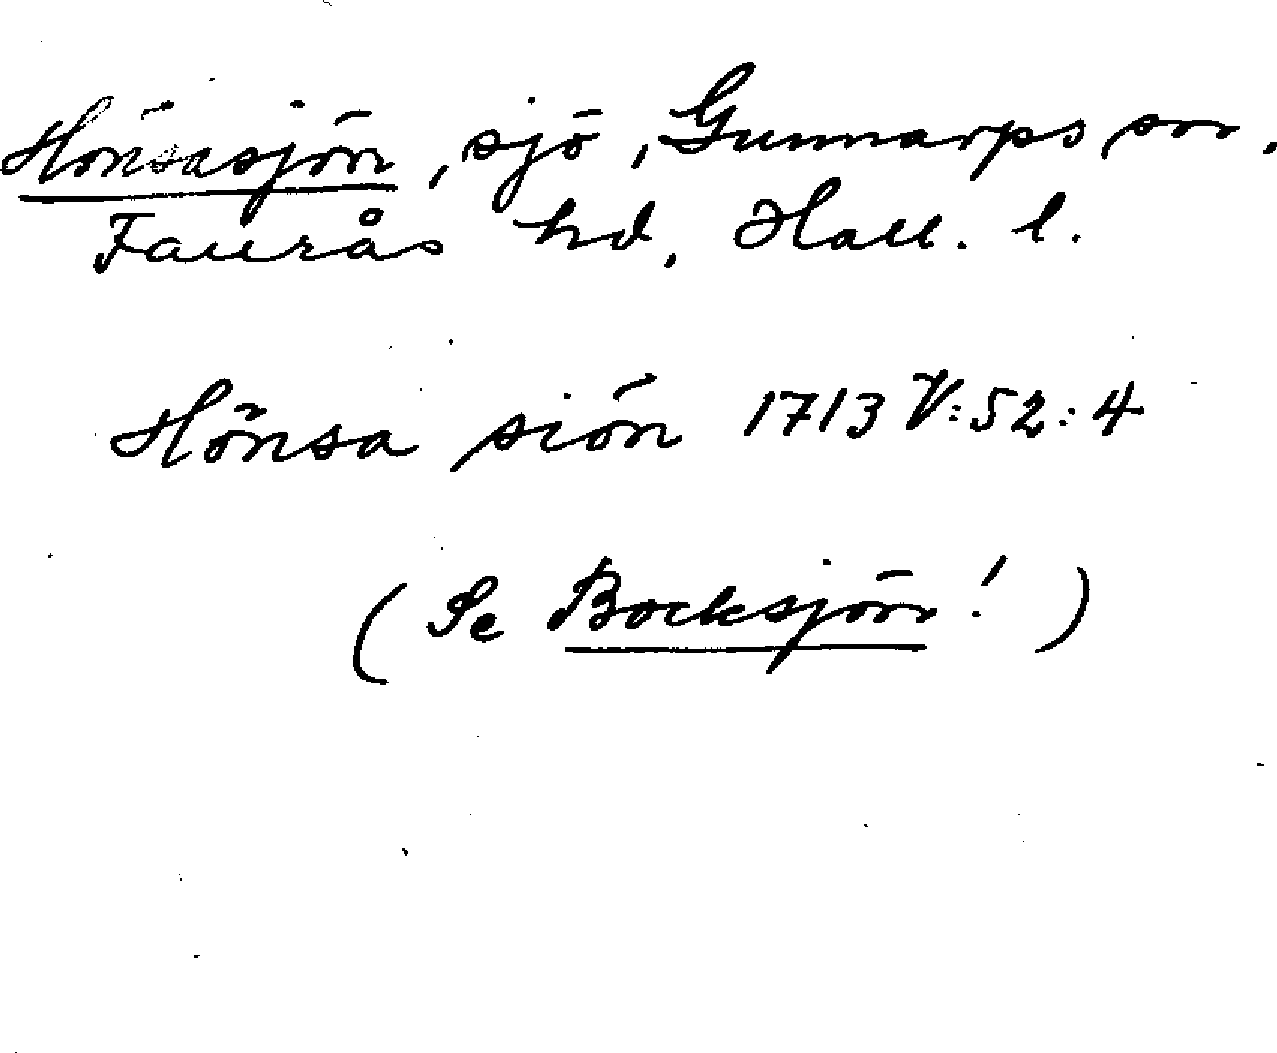 Hönsasjön, sjö, Gunnarps sn,
Faurås hd, Hall. l.
Hönsa siön 1713 V:52:4
(Se Bocksjön!)